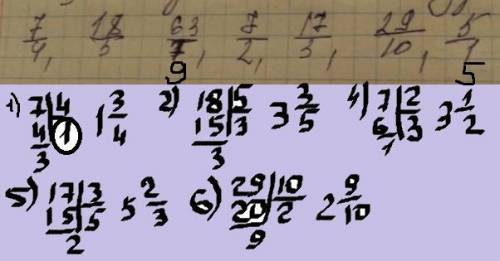 7/4, 18/5, 63/7, 7/2, 17/3, 29/10, 5/1
9 5
1) 7|4 1 3/4 2) 18|5 3 3/5 4) 7|2 3 1/2
4|1 15|3 6|3
3 3 1
5) 17|3 5 2/3 6) 29|10 2 9/10
15|5 20|2
2 9